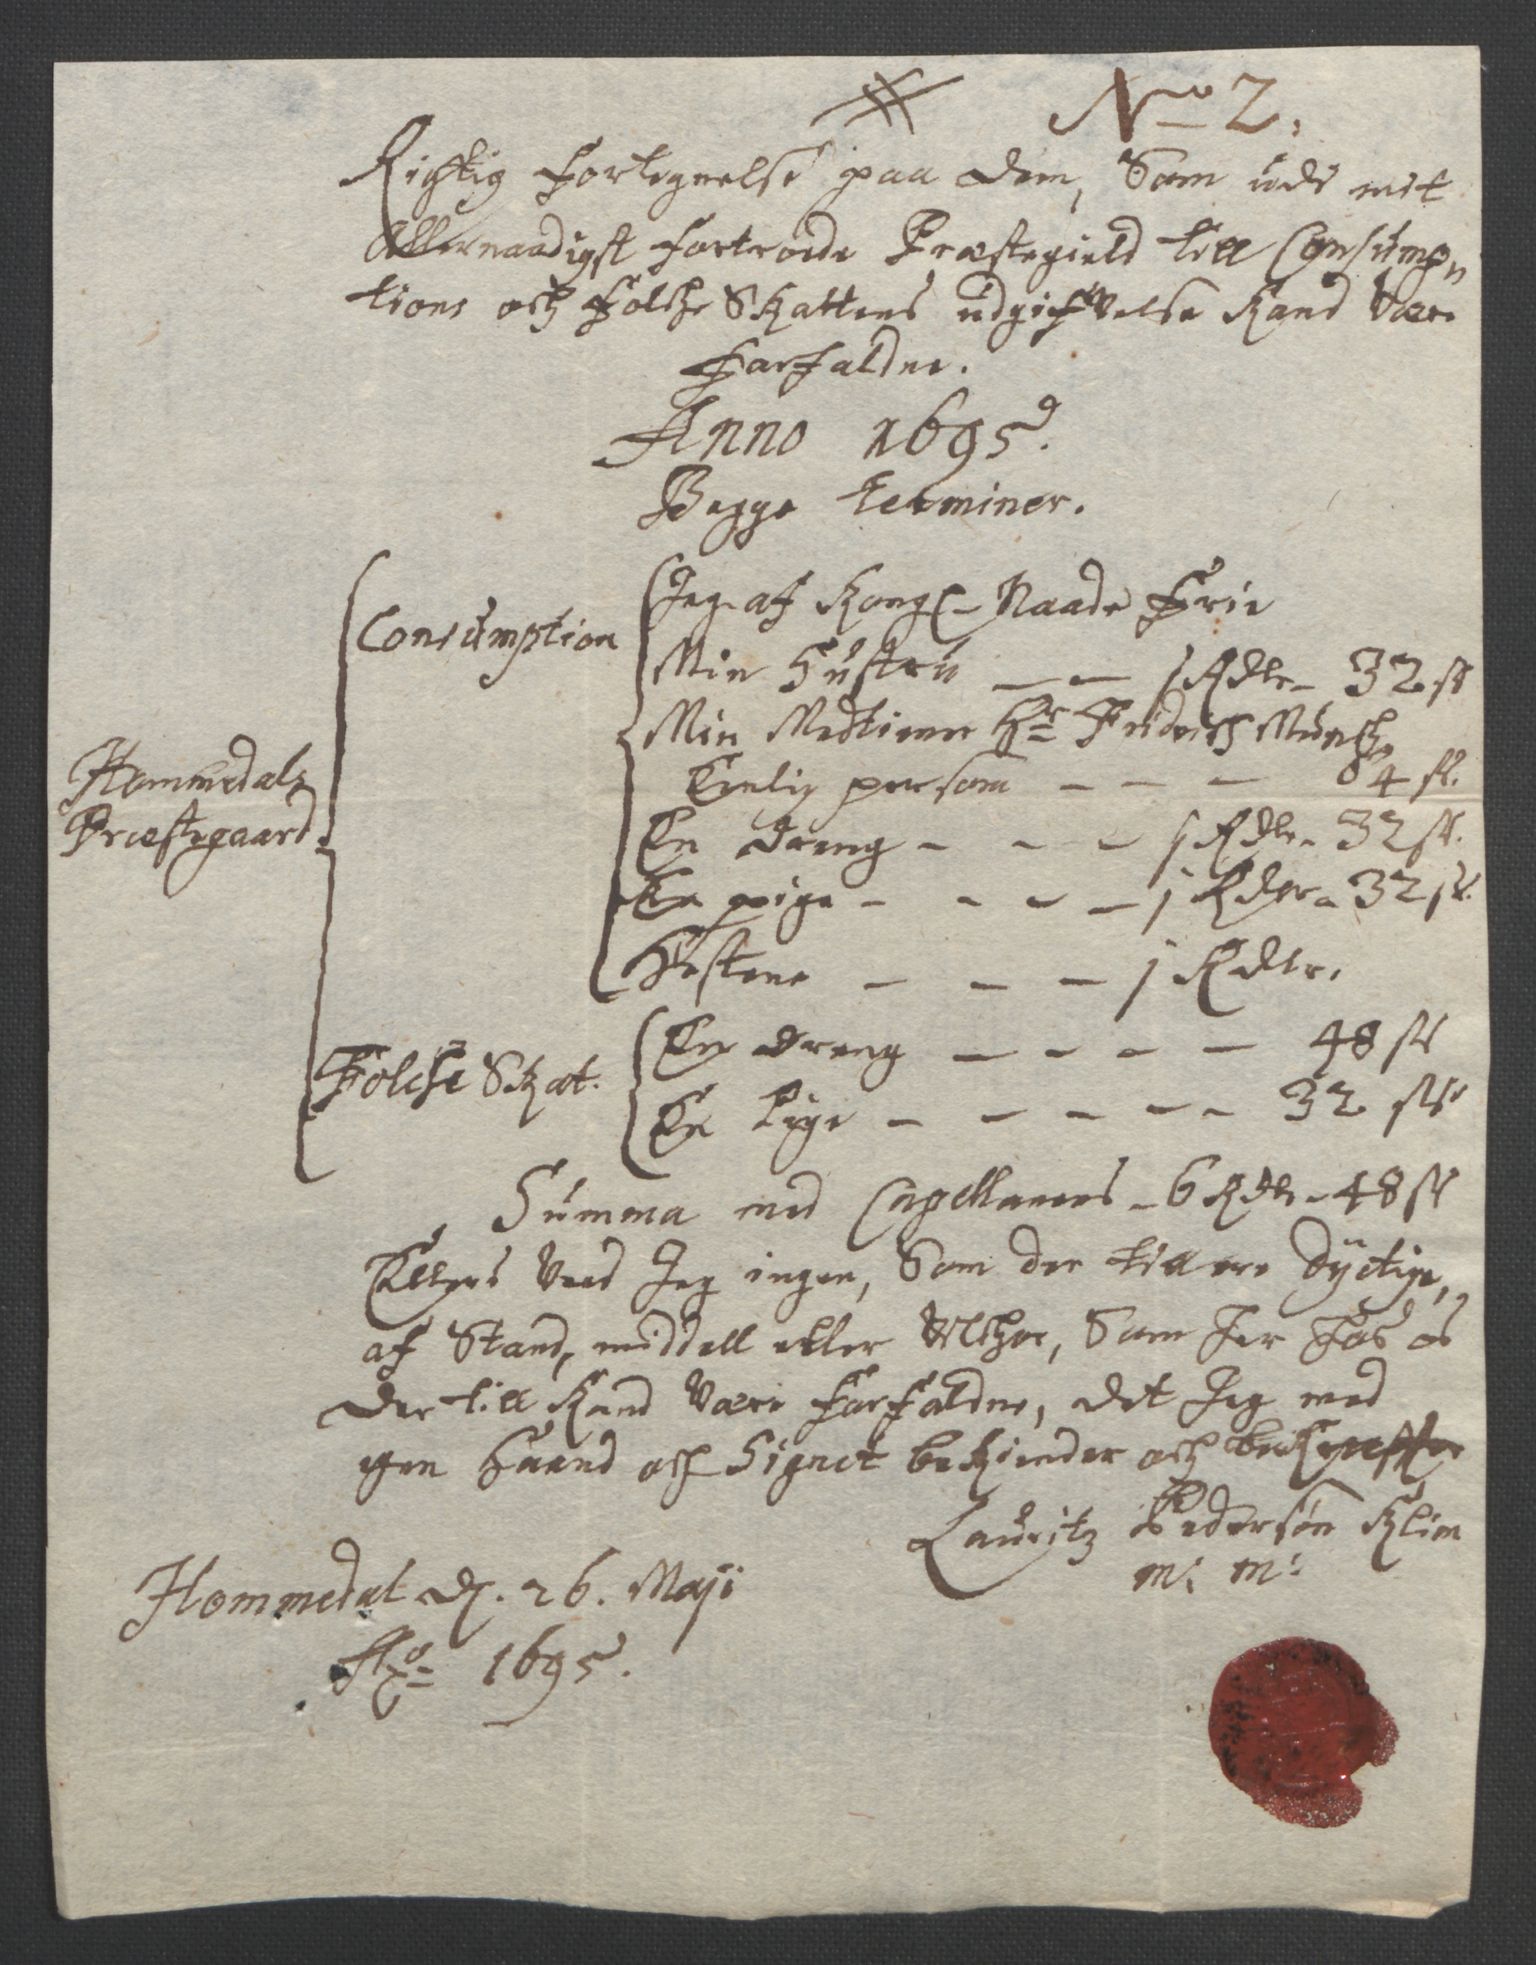 No 2.
Richtig Fortegnelse paa dem, Som udi mit
Allernaadigst fortroede Præstegield till Consump,,
tions och Folche Skattens udgifvelse kand Være
forfaldne.
Anno 1695.
Begge terminer.
Hommedals
Præstegaard
Consumption
Jeg af Kongl Naade Frie
Min Hustru — — 1 Rdlr 32 ss
Min Medtiener Hr Friderich Munch,
Enlig person — — — 64 ss.
En dreng — — — 1 Rdlr 32 ss.
En pige — — — — 1 Rdlr 32 ss.
Hestene — — — 1 Rdlr.
Folche Skat.
En dreng — — — — 48 ss
En Pige — — — — — 32 ss
Summa med Capellanens — 6 Rdlr 48 ss
Ellers Veed Jeg ingen, Som der till ere dyctige,
af Stand, middell eller Vilchor, Som her hos os
der till kand Være forfaldne, det Jeg med
egen Haand och Signet bekiender och bekrefter
Lauritz Pedersøn Klim
m: m:
Hommedal d. 26. Maji
Ao 1695.